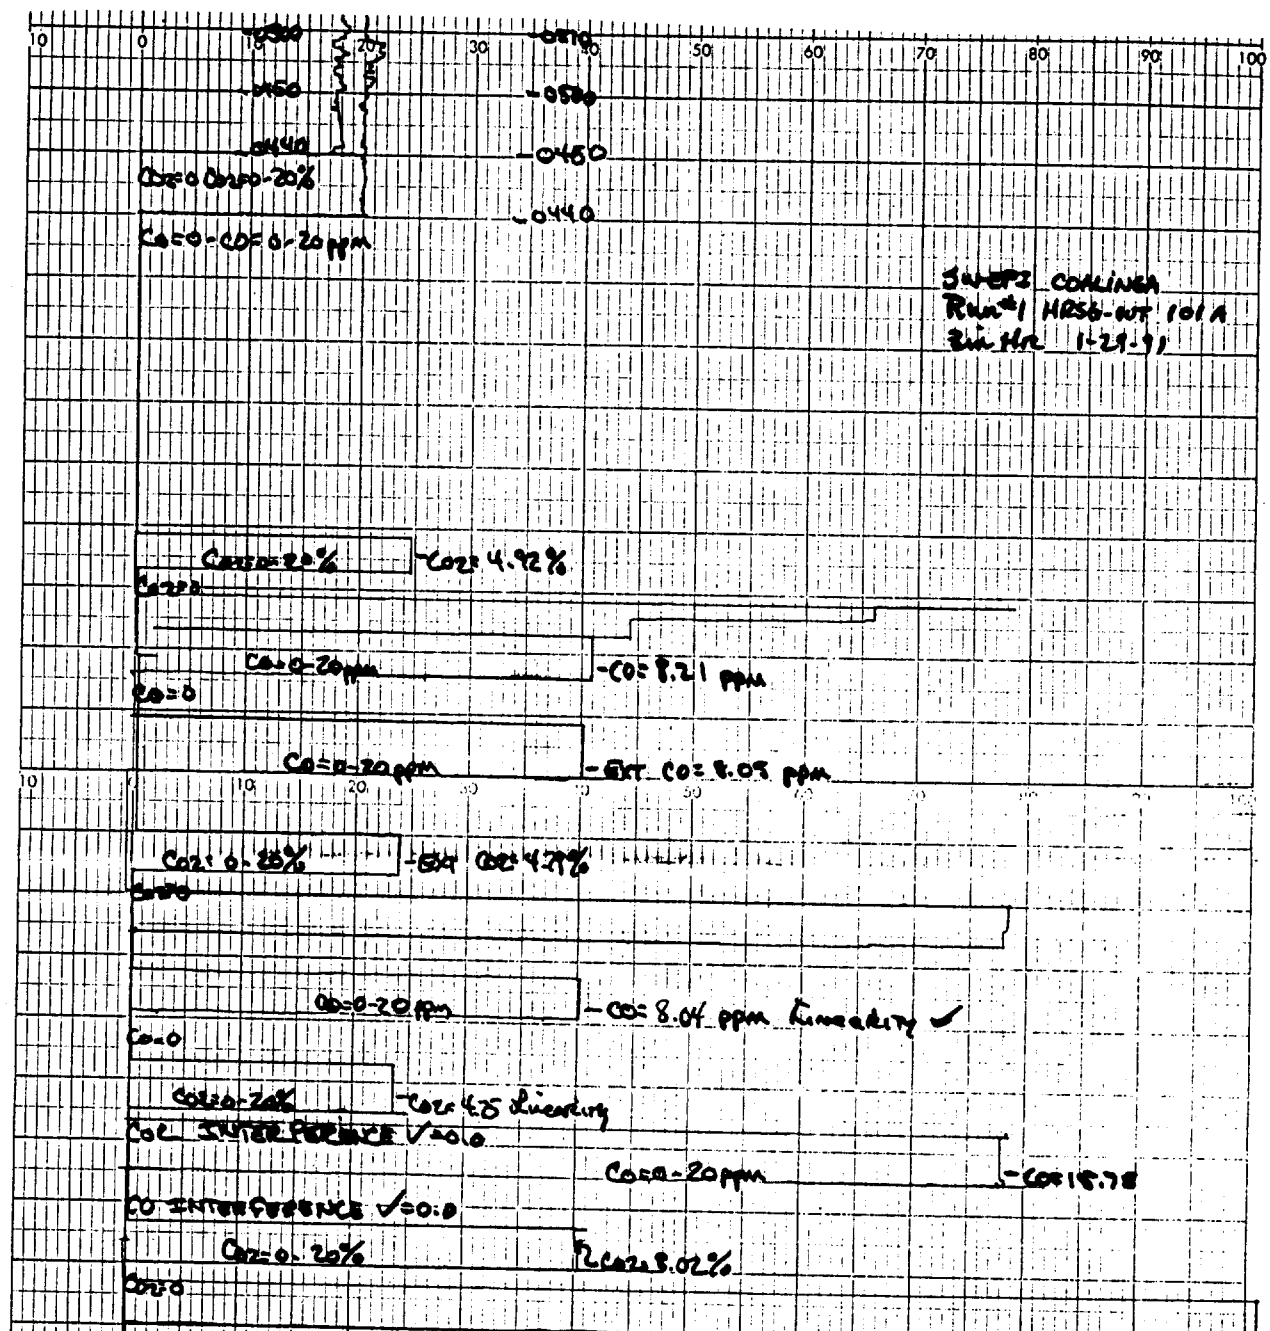 10 0 10 20 30 40 50 60 70 80 90 100
-0500 -0510
-0450 -0500
-0440 -0450
CO2=0 CO2=0-20%
-0440
CO=0-CO=0-20ppm
SWEPI COALINGA
Run#1 HRSG-WT 101A
1-29-91
CO2=0-20% -CO2=4.92%
CO2=0
CO=0-20ppm -CO=8.21 ppm
CO=0
CO=0-20ppm -EXT CO=8.05 ppm
10 0 10 20 30 40 50 60 70 80 90 100
CO2=0-20% -EXT CO2=4.79%
CO2=0
CO=0-20ppm -CO=8.04 ppm Linearity ✓
CO=0
CO2=0-20% -CO2=4.75 Linearity
CO2 INTERFERENCE ✓=0.0
CO=0-20ppm -CO=15.78
CO INTERFERENCE ✓=0.0
CO2=0-20% CO2=8.02%
CO2=0